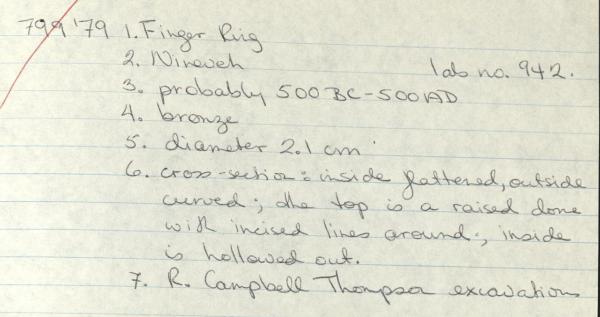 799'79 1. Finger Ring
2. Nineveh lab no. 942.
3. probably 500 BC - 500 AD
4. bronze
5. diameter 2.1 cm
6. cross-section: inside flattened, outside
curved; the top is a raised dome
with incised lines around; inside
is hollowed out.
7. R. Campbell Thompson excavations